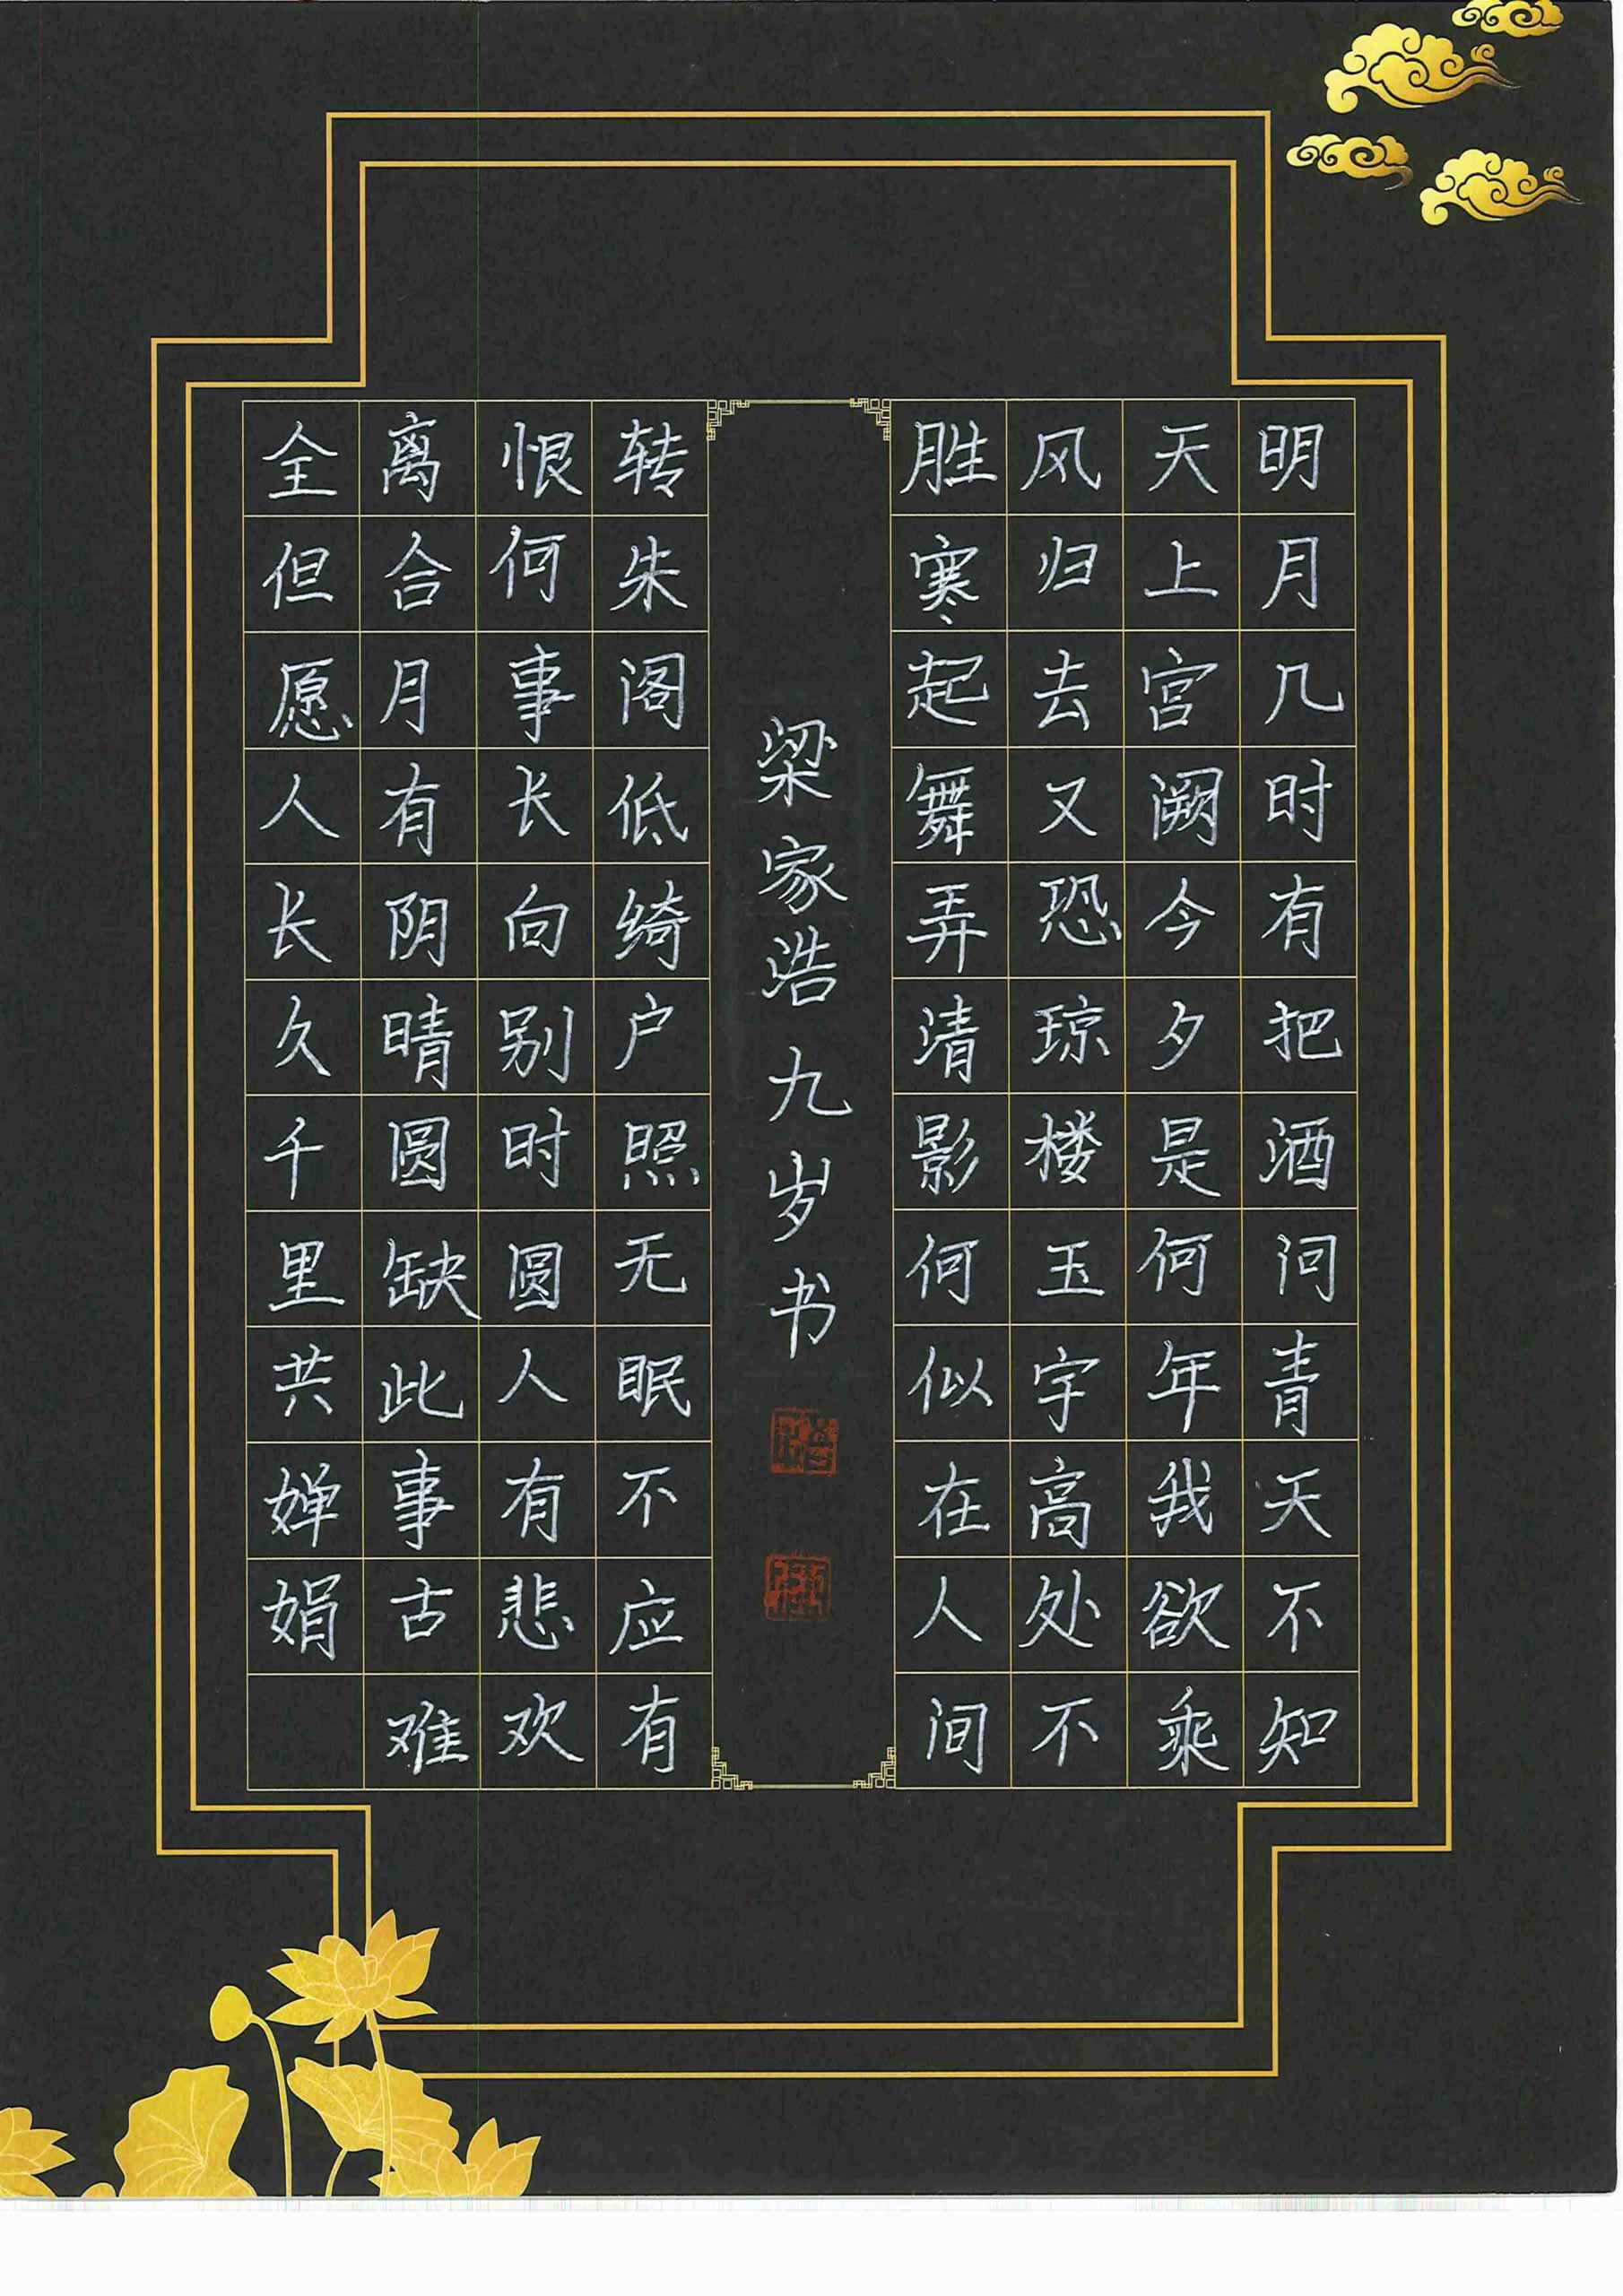 明月几时有把酒问青天不知
天上宫阙今夕是何年我欲乘
风归去又恐琼楼玉宇高处不
胜寒起舞弄清影何似在人间
梁家浩九岁书
转朱阁低绮户照无眠不应有
恨何事长向别时圆人有悲欢
离合月有阴晴圆缺此事古难
全但愿人长久千里共婵娟